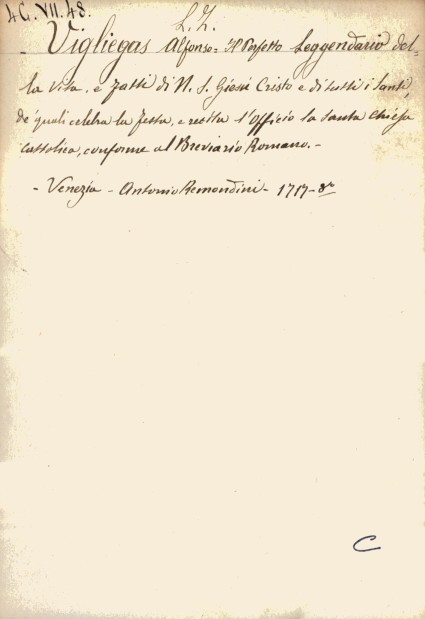 4C. VII. 48.
L. Z.
Vigliegas Alfonso = Il Perfetto Leggendario del=
la Vita, e Fatti di N. S. Giesù Cristo e di tutti i Santi,
de' quali celebra la Festa, e recita l'Officio la Santa Chiesa
Cattolica, conforme al Breviario Romano. -
- Venezia - Antonio Remondini - 1717 - 8vo
C